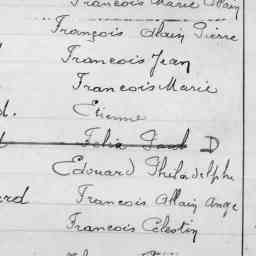 François Marie Alain
François Alain Pierre
François Jean
François Marie
d. Etienne
Felix Paul D
Edouard Philadelphe
erd François Alain Ange
François Célestin